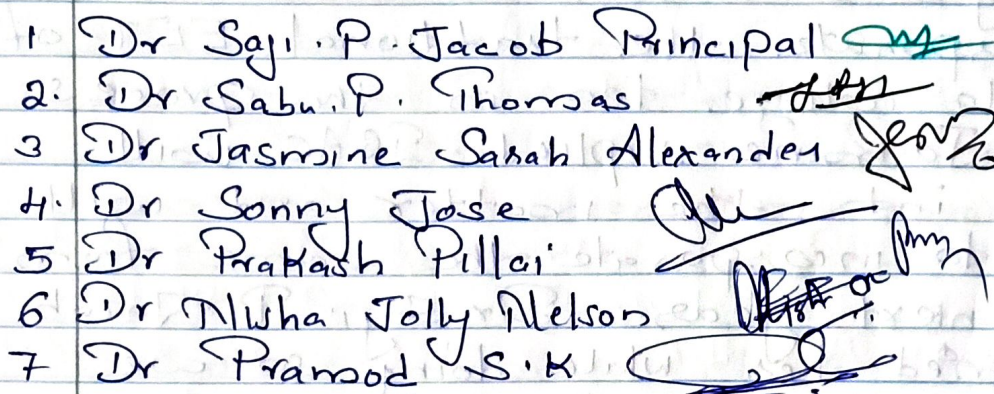 1 Dr Saji. P. Jacob Principal
2. Dr Sabu. P. Thomas
3 Dr Jasmine Sarah Alexander
4. Dr Sonny Jose
5 Dr Prakash Pillai
6 Dr Nisha Jolly Nelson
7 Dr Pramod S.K